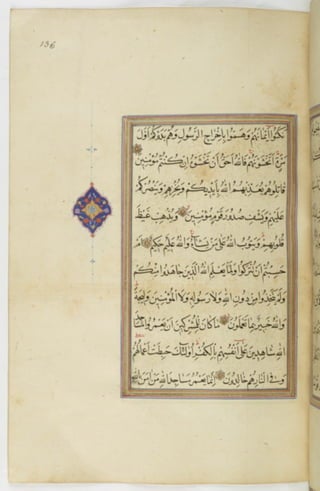 136
نكثوا أيمانهم وهموا بإخراج الرسول وهم بدؤكم أول
مرة أتخشونهم فالله أحق أن تخشوه إن كنتم مؤمنين
قاتلوهم يعذبهم الله بأيديكم ويخزهم وينصركم
عليهم ويشف صدور قوم مؤمنين ويذهب غيظ
قلوبهم ويتوب الله على من يشاء والله عليم حكيم أم
حسبتم أن تتركوا ولما يعلم الله الذين جاهدوا منكم
ولم يتخذوا من دون الله ولا رسوله ولا المؤمنين وليجة
والله خبير بما تعملون ما كان للمشركين أن يعمروا مساجد
الله شاهدين على أنفسهم بالكفر أولئك حبطت أعمالهم
وفي النار هم خالدون إنما يعمر مساجد الله من آمن بالله